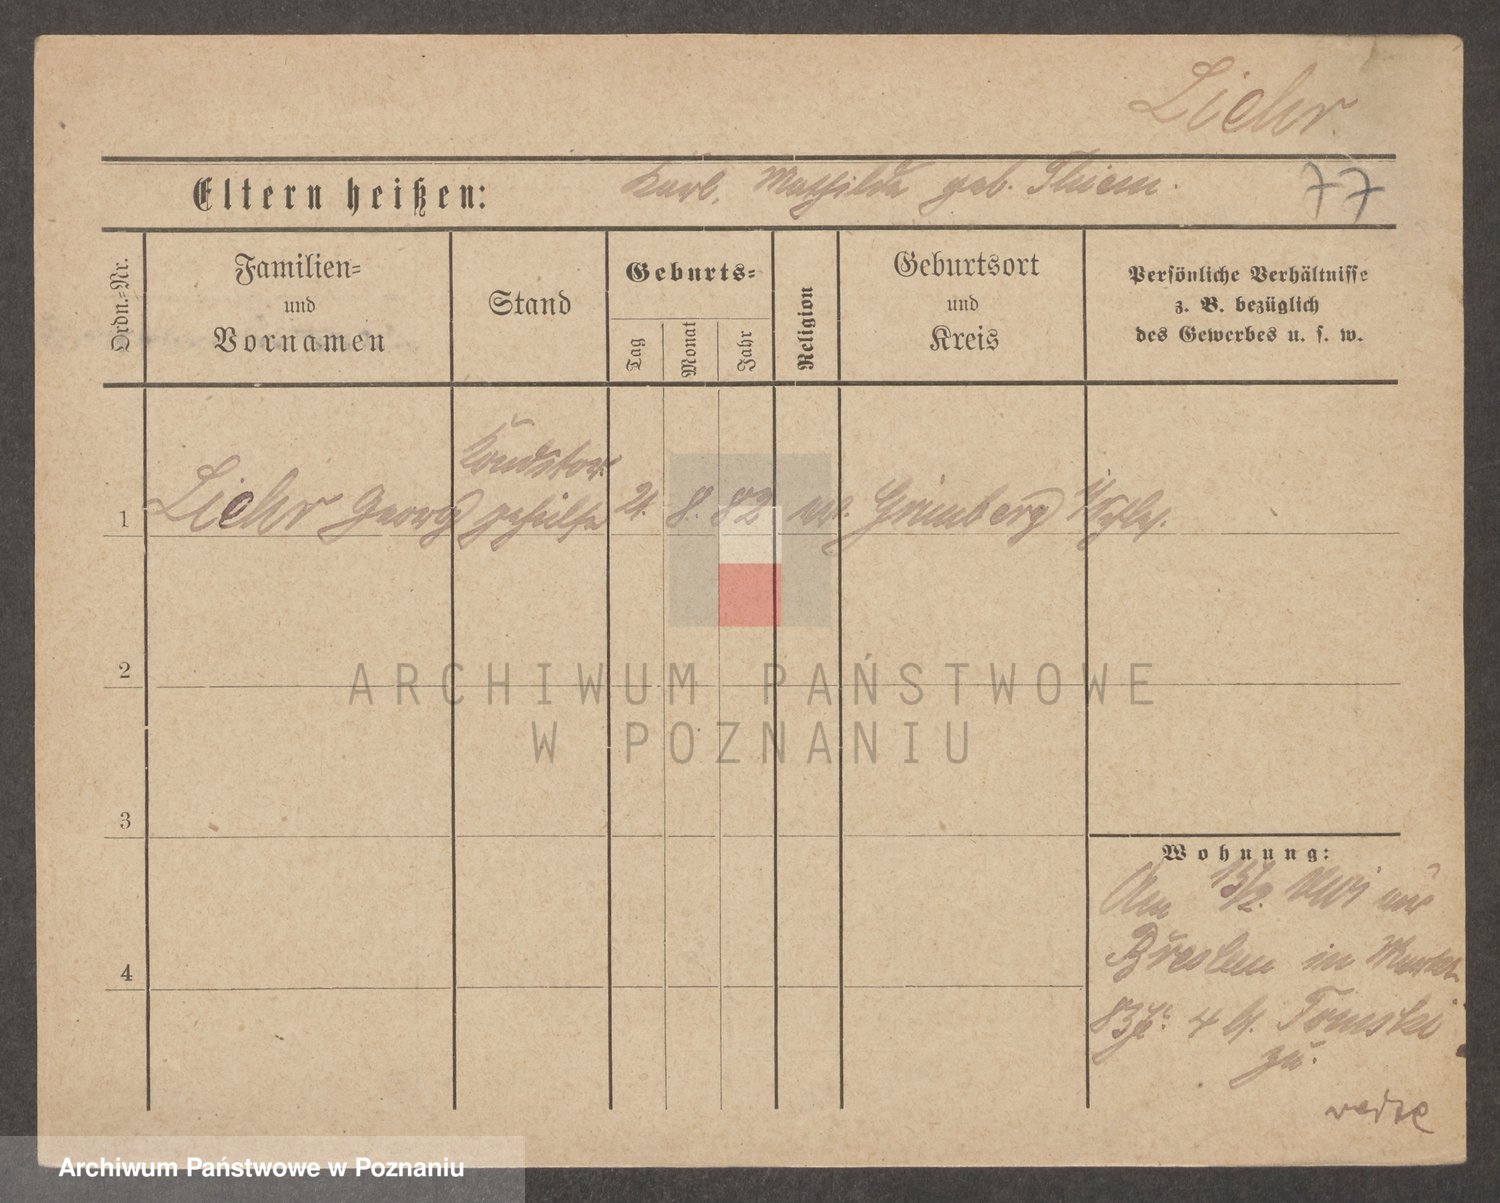 Liehr
Eltern heißen: Karl, Mathilde geb. Thiem.
77
Ordn.-Nr.
Familien-
und
Vornamen
Stand
Geburts-
Tag
Monat
Jahr
Religion
Geburtsort
und
Kreis
Persönliche Verhältnisse
z. B. bezüglich
des Gewerbes u. s. w.
Konditor
1 Liehr Georg gehilfe 21. 8. 82 ev. Grünberg i/Schles.
2
3
4
Wohnung:
Am 15/2. von
Breslau in
4 b.
zu.
ARCHIWUM PAŃSTWOWE
W POZNANIU
Archiwum Państwowe w Poznaniu